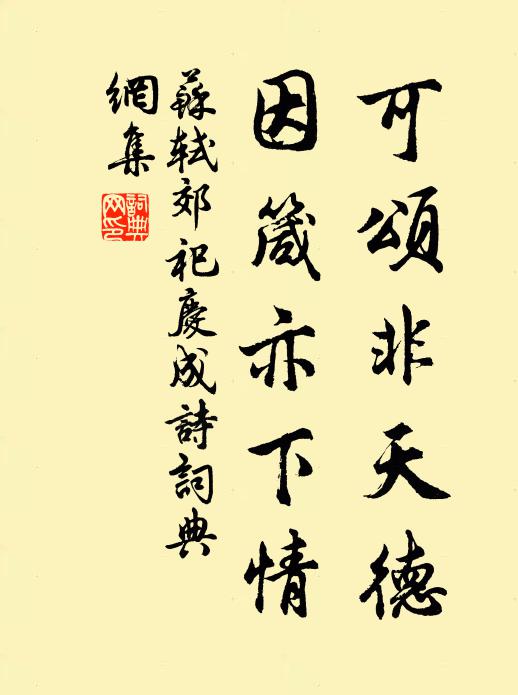 可頌非天德
因箴亦下情
蘇軾郊祀慶成詩詞典
網集
詞典
网印